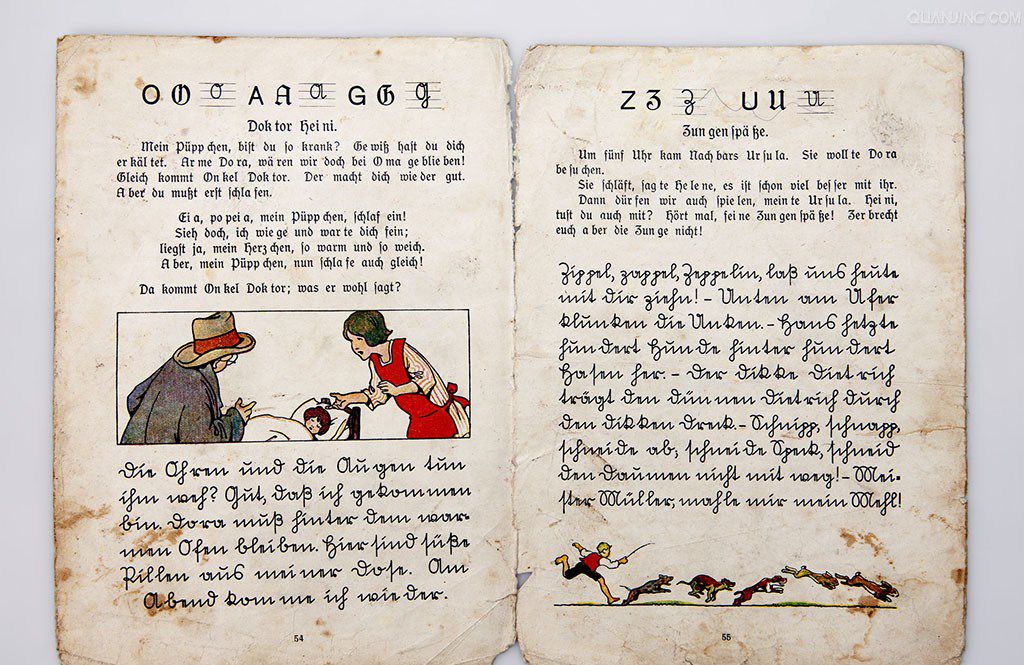 QUANJING.COM
O O O A A A G G G
Dok tor Hei ni.
Mein Püpp chen, bist du so krank? Ge wiß hast du dich
er käl tet. Ar me Do ra, wä ren wir doch bei O ma ge blie ben!
Gleich kommt On kel Dok tor. Der macht dich wie der gut.
A ber du mußt erst schla fen.
Ei a, po pei a, mein Püpp chen, schlaf ein!
Sieh doch, ich wie ge und war te dich fein;
liegst ja, mein Herz chen, so warm und so weich.
A ber, mein Püpp chen, nun schla fe auch gleich!
Da kommt On kel Dok tor; was er wohl sagt?
Die Ohren und die Au gen tun
ihm weh? Gut, daß ich gekommen
bin. Dora muß hinter dem war-
men Ofen bleiben. Hier sind süße
Pillen aus mei ner Dose. Am
Abend kom me ich wie der.
54
Z Z Z U U U
Zun gen spä ße.
Um fünf Uhr kam Nach bars Ur su la. Sie woll te Do ra
be su chen.
Sie schläft, sag te He le ne, es ist schon viel bes ser mit ihr.
Dann dür fen wir auch spie len, mein te Ur su la. Hei ni,
tust du auch mit? Hört mal, fei ne Zun gen spä ße! Zer brecht
euch a ber die Zun ge nicht!
Zippel, zappel, Zeppelin, laß uns heute
mit dir ziehn! - Unten am Ufer
klunken die Unken. - Hans hetzte
hun dert Hun de hinter hun dert
Hasen her. - Der dikke Diet rich
trägt den dün nen Diet rich durch
den dik ken Dreck. - Schnipp, schnapp,
schneide ab, schneide Speck, schneid
den Daumen nicht mit weg! - Mei-
ster Müller, mahle mir mein Mehl!
55